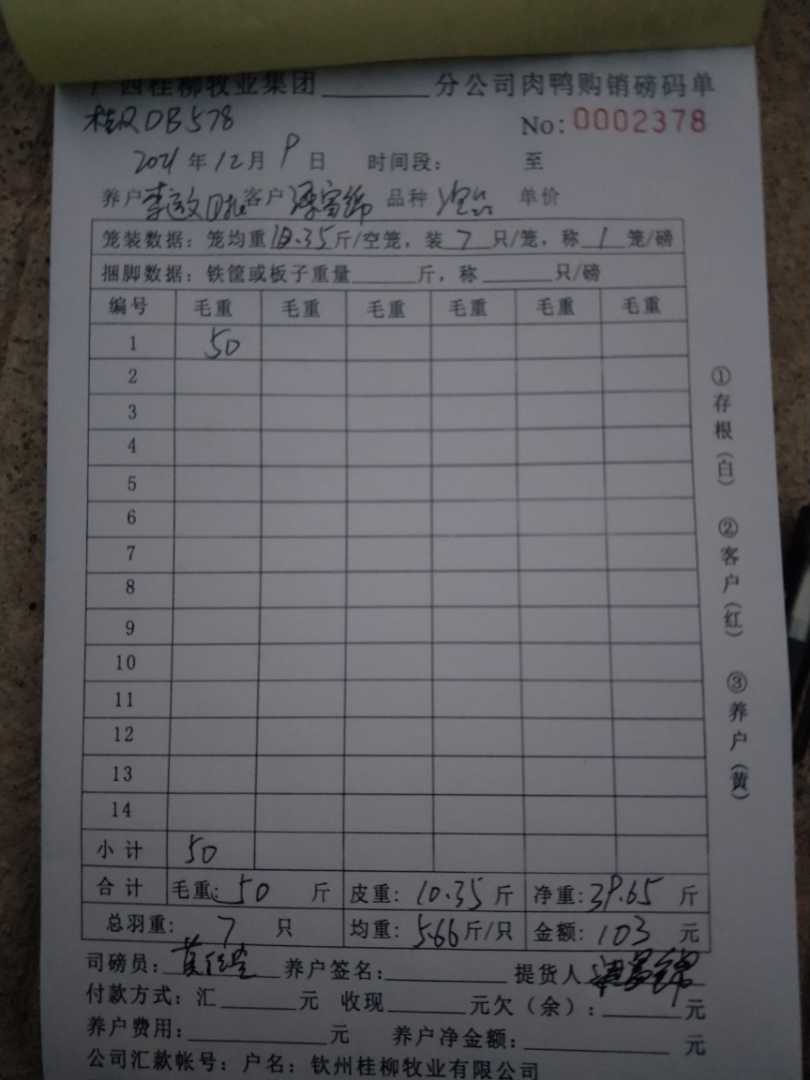 广西桂柳牧业集团______分公司肉鸭购销磅码单
DB578 No: 0002378
2021年12月9日 时间段: 至
养户 李 客户 锦 品种 单价
笼装数据: 笼均重10.35斤/空笼, 装7只/笼, 称1笼/磅
捆脚数据: 铁筐或板子重量____斤, 称____只/磅
编号 毛重 毛重 毛重 毛重 毛重 毛重
1 50
2
3
4
5
6
7
8
9
10
11
12
13
14
小计 50
合计 毛重: 50 斤 皮重: 10.35 斤 净重: 39.65 斤
总羽重: 7 只 均重: 5.66 斤/只 金额: 103 元
司磅员: 养户签名:______ 提货人 锦
付款方式: 汇____元 收现____元欠(余):____元
养户费用:______元 养户净金额:______元
公司汇款帐号: 户名: 钦州桂柳牧业有限公司
①存根(白) ②客户(红) ③养户(黄)